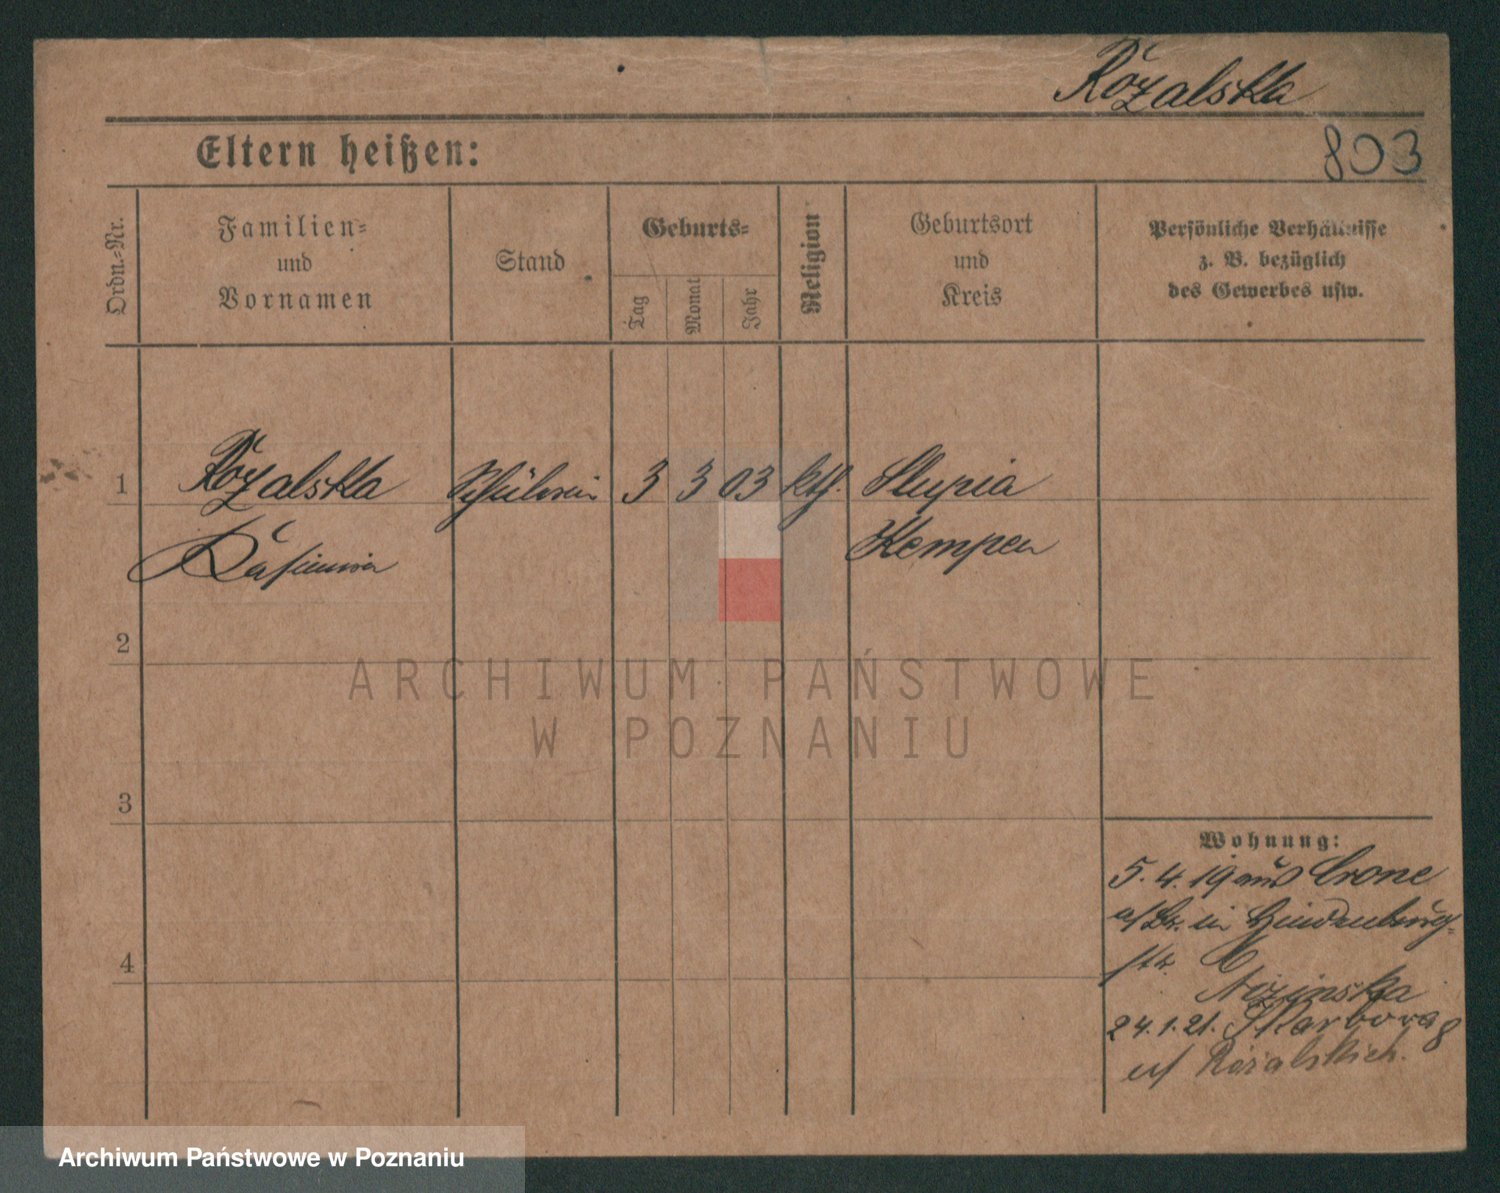 Różalska
803
Eltern heißen:
Ordn.-Nr.
Familien-
und
Vornamen
Stand
Geburts-
Tag
Monat
Jahr
Religion
Geburtsort
und
Kreis
Persönliche Verhältnisse
z. B. bezüglich
des Gewerbes usw.
1 Różalska Schülerin 3 3 03 kth. Slupia
Kempen
2
3
4
Wohnung:
5. 4. 19 aus Crone
a/Br. in Hindenburg-
str.
24.1.21. Skarbowa 8
ARCHIWUM PAŃSTWOWE
W POZNANIU
Archiwum Państwowe w Poznaniu